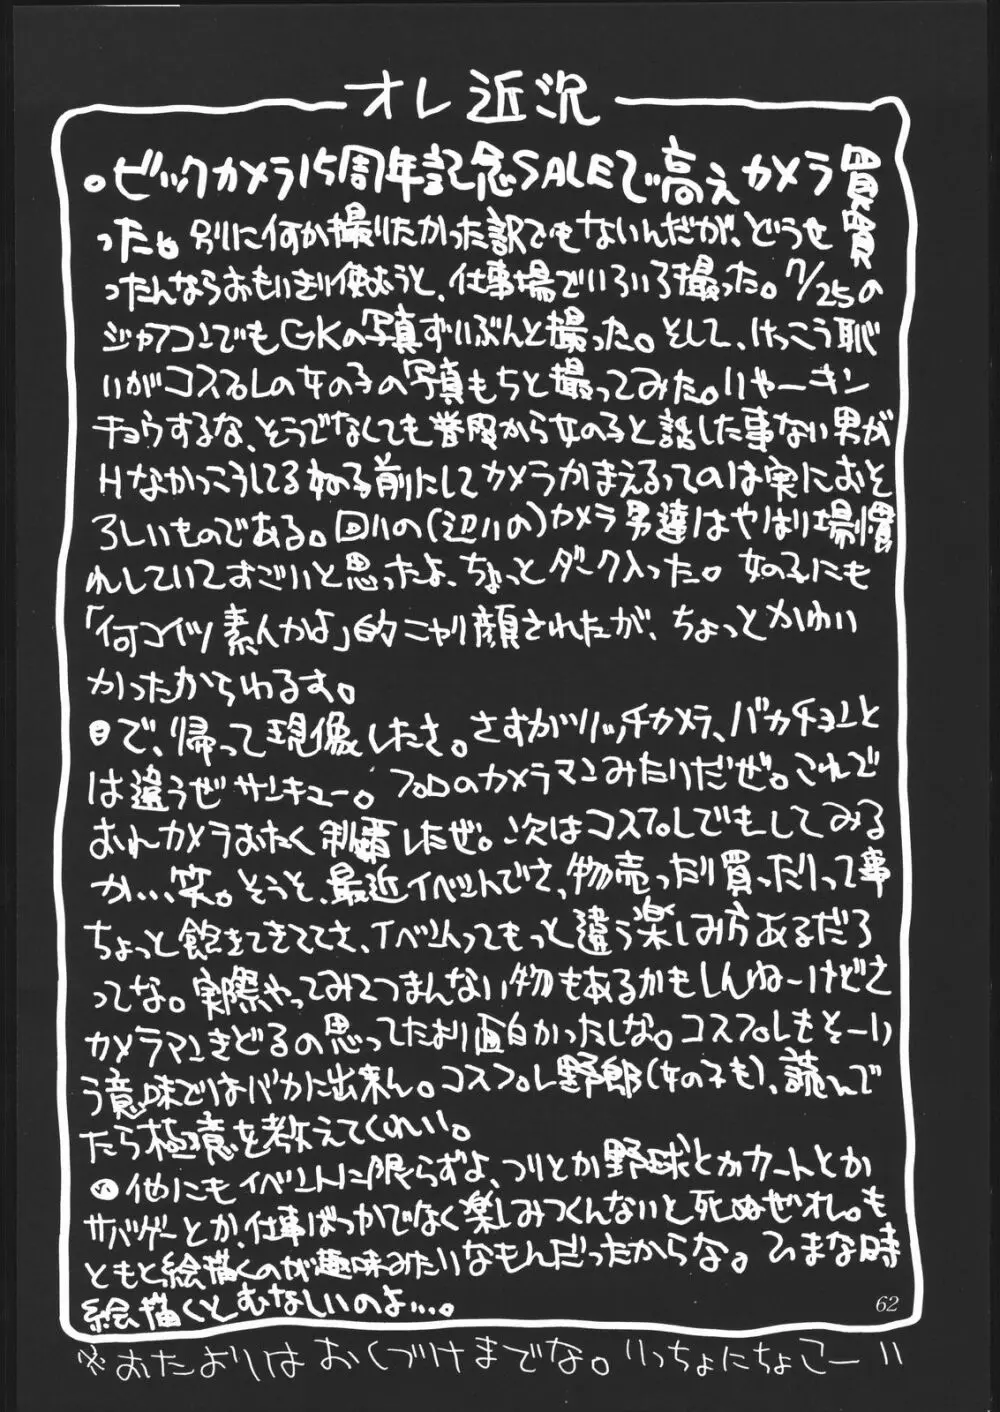 オレ近況
。ビックカメラ15周年記念SALEで高えカメラ買
った。別に何か撮りたかった訳でもないんだが、どうせ買
ったんならおもいきり使おうと、仕事場でいろいろ撮った。7/25の
ジャフコンでもGKの写真ずいぶんと撮った。そして、けっこう恥
いがコスプレの女の子の写真もちと撮ってみた。いやーキン
チョウするな、そうでなくても普段から女の子と話した事ない男が
Hなかっこうしてるねる前にしてカメラかまえるってのは実におそ
ろしいものである。回りの(辺りの)カメラ男達はやはり場慣
れしていてすごいと思ったよ、ちょっとダーク入った。女の子にも
「何コイツ素人かよ」的ニャリ顔されたが、ちょっとかゆい
かったからわるす。
で、帰って現像したさ。さすがリッチカメラ、バカチョンと
は違うぜサンキュー。プロのカメラマンみたいだぜ。これで
おれカメラおたく制覇したぜ。次はコスプレでもしてみる
か…笑。そうと、最近イベントでさ、物売ったり買ったりって事
ちょっと飽きてきててさ、イベントってもっと違う楽しみ方あるだろ
ってな。実際やってみてつまんない物もあるかもしんねーけどさ
カメラマンきどるの思ってたより面白かったしな。コスプレもそーい
う意味ではバカに出来ん。コスプレ野郎(女の子も)、読んで
たら極意を教えてくれい。
他にもイベントに限らずよ、つりとか野球とかカートとか
サバゲーとか、仕事ばっかでなく楽しみつくんないと死ぬぜオレ。も
ともと絵描くのが趣味みたいなもんだったからな。ひまな時
絵描くとむなしいのよ…。
62
※おたよりはおくづけまでな。いっちょにちょこーい